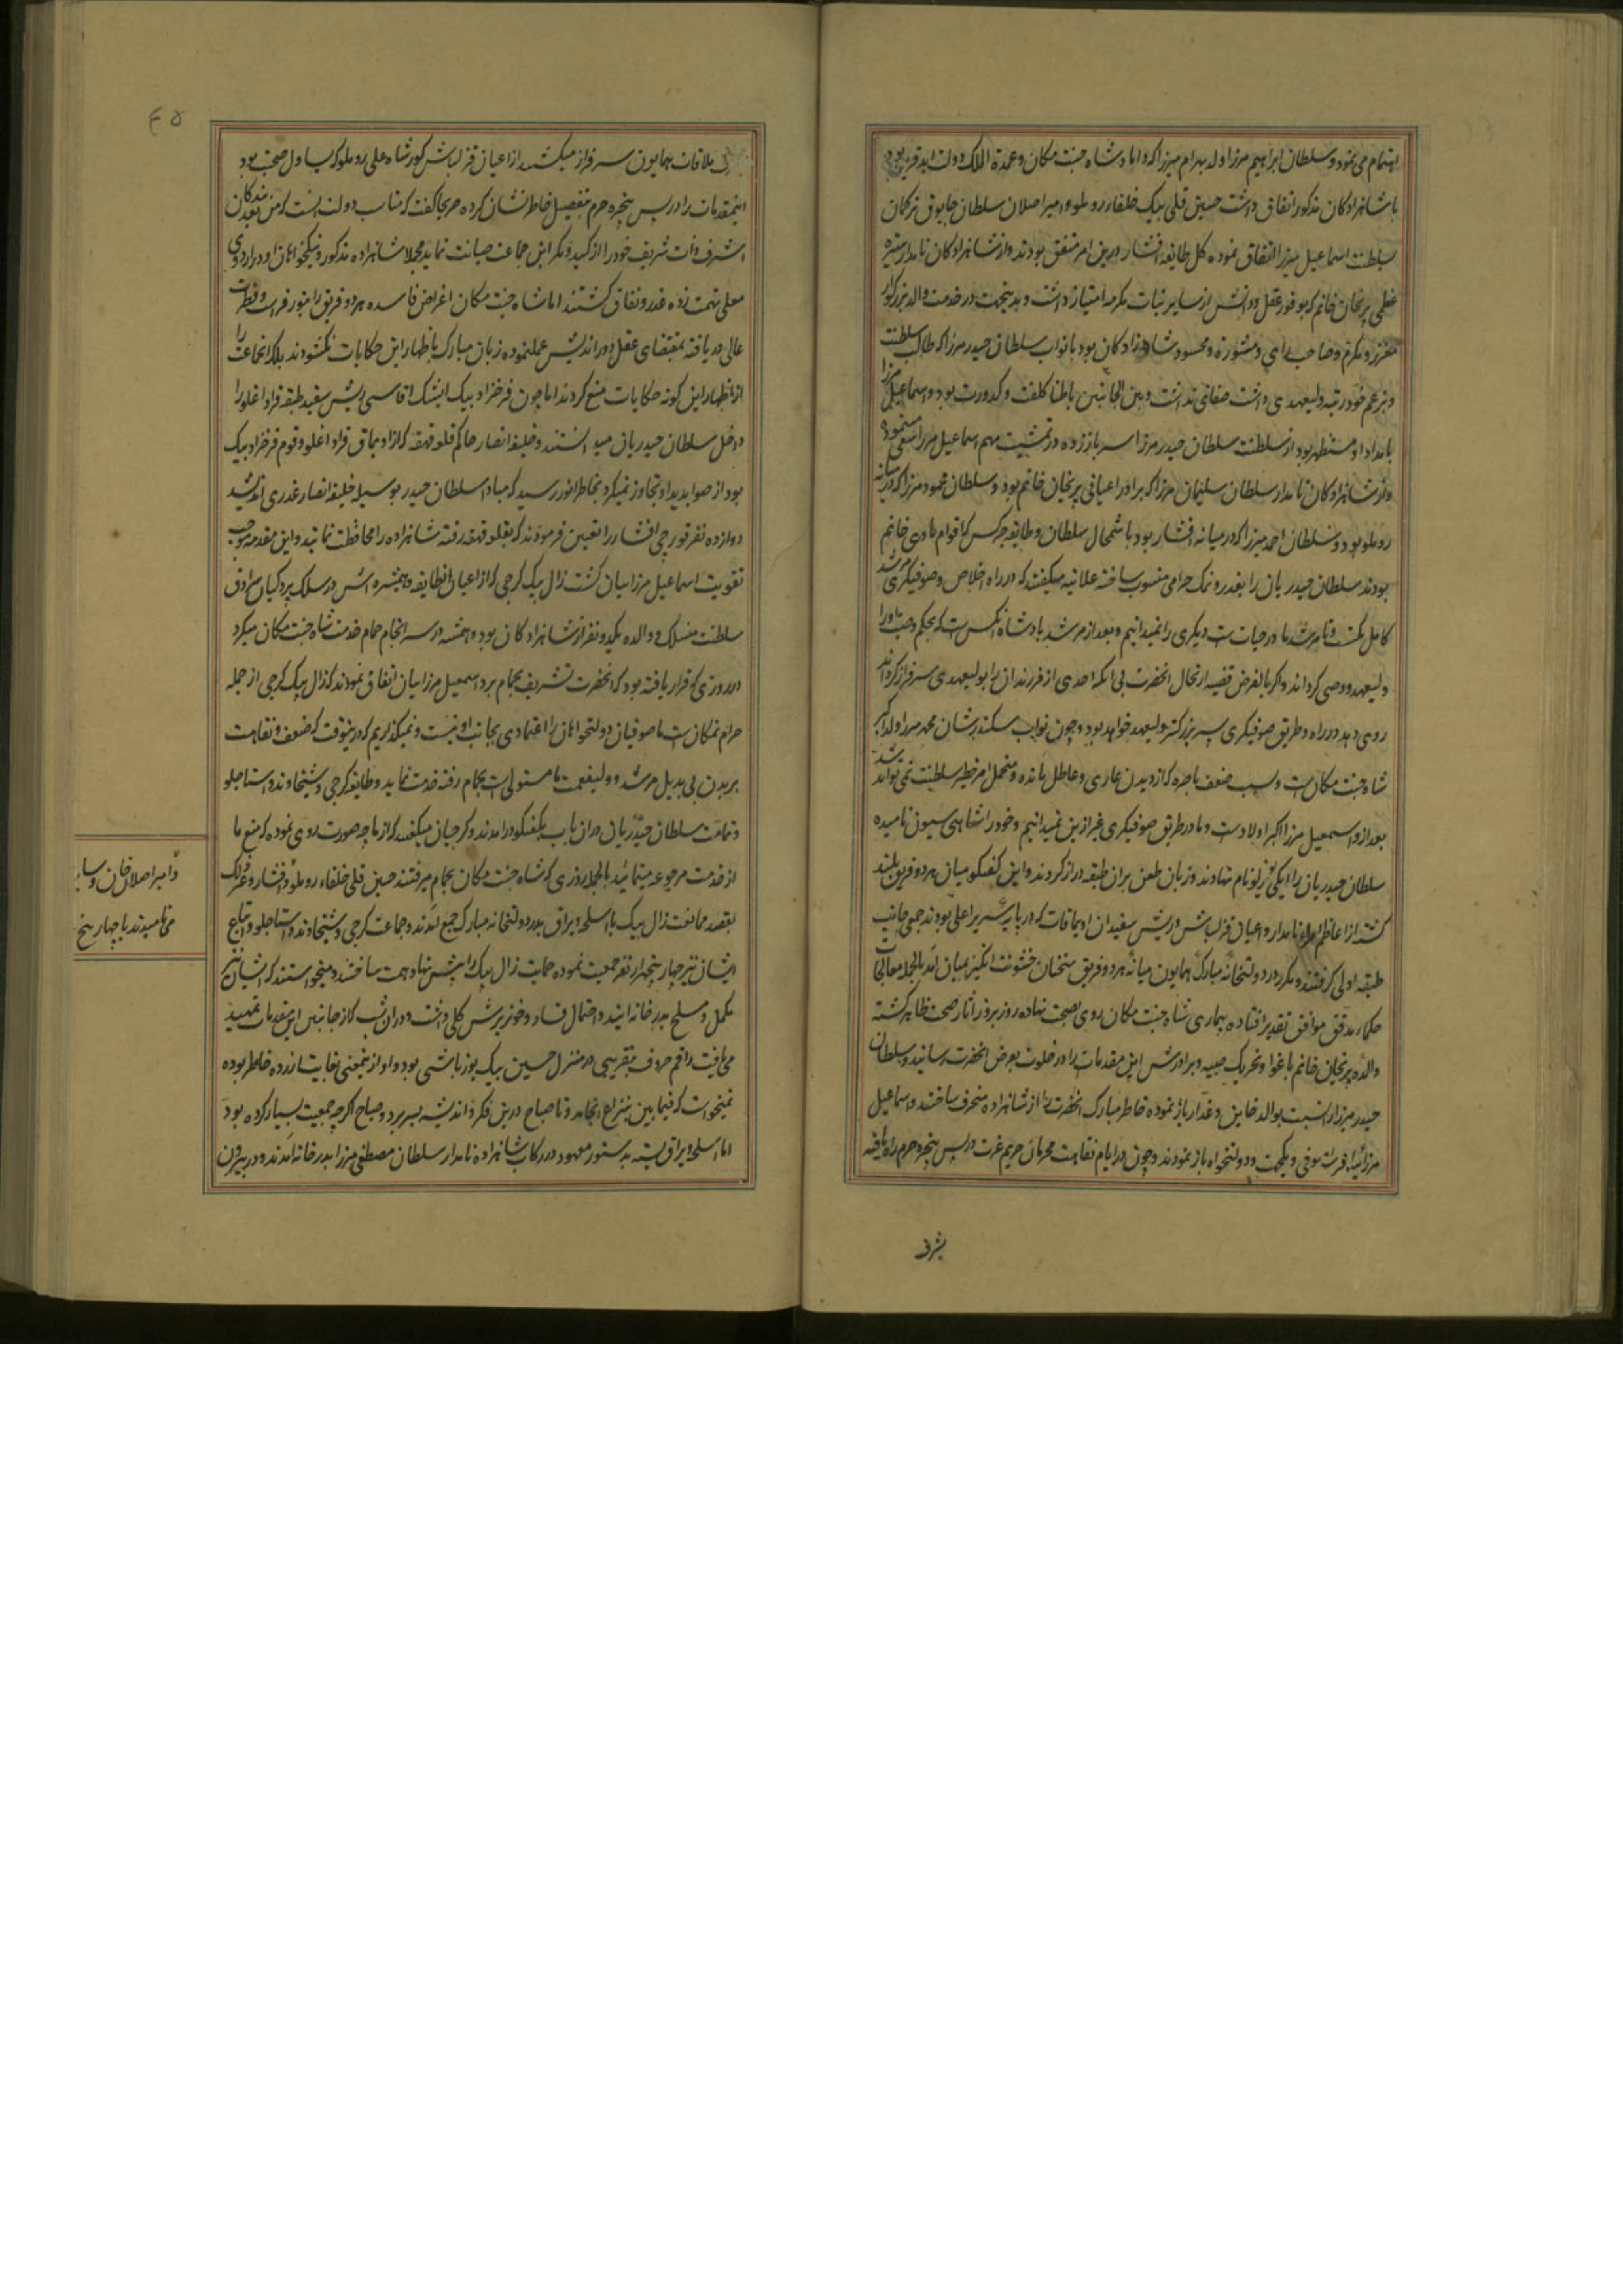 اهتمام می نمود و سلطان ابراهیم میرزا ولد بهرام میرزا که داماد شاه جنت مکان و عمدة الملک دولت ابد قرین بود
با شاهزادکان مذکور اتفاق داشت حسین قلی بیک خلفاء روملو و امیر اصلان سلطان
سلطنت اسماعیل میرزا اتفاق نموده کل طایفه افشار درین امر متفق بودند و از شاهزادکان نامدار ستیره
عظمی پریخان خانم که بوفور عقل و دانش از سایر بنات مکرمه امتیاز داشت و بدینجهت در خدمت والد بزرکوار
معزز و مکرم و صاحب رای و مشورة و محسود شاهزادکان بود با نواب سلطان حیدر میرزا که طالب سلطنت
و بزعم خود رتبه ولیعهدی داشت صفائی نداشت و بین الجانبین باطنا کلفت و کدورت بود و اسماعیل میرزا
بامداد او مستظهر بود از سلطنت سلطان حیدر میرزا سر باز زده در تمشیت مهم اسماعیل میرزا سعی مینمود
و از شاهزادکان نامدار سلطان سلیمان میرزا که برادر اعیانی پریخان خانم بود و سلطان محمود میرزا که در میانه
روملو بود و سلطان احمد میرزا که در میانه افشار بود با شمخال سلطان و طایفه چرکس که اقوام مادری خانم
بودند سلطان حیدریان را بغدر و نمک حرامی منسوب ساخته علانیه میکفتند که در راه اخلاص و صوفیکری مرشد
کامل یکیست و تا مرشد ما در حیاتست دیکری را نمیدانیم و بعد از مرشد پادشاه انکس است که بحکم وصیت او را
ولیعهد و وصی کرداند و اکر بالفرض قضیه ارتحال انحضرت بی انکه احدی از فرزندان را بولیعهدی سرفراز کرداند
روی دهد در راه و طریق صوفیکری پسر بزرکتر ولیعهد خواهد بود و چون نواب سکندرشان محمد میرزا ولد اکبر
شاه جنت مکان است و بسبب ضعف باصره که از دیدن عاری و عاطل مانده و متحمل امر خطیر سلطنت نمی تواند شد
بعد از او اسمعیل میرزا اکبر اولاد است و ما در طریق صوفیکری غیر ازین نمیدانیم و خود را شاهی سیون نامیده
سلطان حیدریان را نام نهادند و زبان طعن بران طبقه دراز کردند و این کفتکو میان هر دو فریق بلند
کشته از اعاظم امراء نامدار و اعیان قزلباش و ریش سفیدان اویماقات که در پایه سریر اعلی بودند جمعی جانب
طبقه اولی کرفتند و مکرر در دولتخانه مبارک همایون میانه هر دو فریق سخنان خشونت انکیز بمیان امد بالجمله معالجات
حکماء مدقق موافق تقدیر افتاده بیماری شاه جنت مکان روی بصحت نهاده روز بروز اثار صحت ظاهر کشته
والده پریخان خانم باغوا و تحریک صبیه و برادرش این مقدمات را در خلوت بعرض انحضرت رسانید و سلطان
حیدر میرزا را نسبت بوالد خاین و غدار باز نموده خاطر مبارک انحضرت را از شاهزاده منحرف ساختند و اسماعیل
میرزا را بوفی و یکجهت و دولتخواه باز نمودند و چون در ایام نقاهت محرمان حریم عزت در پس پنجره حرم راه یافته
بشرف
۴۵
ملاقات همایون سرفراز میکشتند از اعیان قزلباش کورشاه علی روملو که یساول صحبت بود
اینمقدمات را در پس پنجره حرم بتفصیل خاطر نشان کرده صریحا کفت که مناسب دولت انست که من بعد بندکان
اشرف ذات شریف خود را از کید و مکر این جماعت صیانت نماید مجملا شاهزاده مذکور و نیکخواهان او در اردوی
معلی تهمت زده غدر و نفاق کشتند اما شاه جنت مکان اغراض فاسده هر دو فریق را بنور فراست و فطرت
عالی دریافته بمقتضای عقل دوراندیش عمل نموده زبان مبارک باظهار این حکایات نکشودند بلکه انجماعت را
از اظهار این کونه حکایات منع کردند اما چون فرخزاد بیک ایشک اقاسی ریش سفید طبقه قراداغلو را
داخل سلطان حیدریان میدانستند و خلیفه انصار حاکم قلعه قهقه که از اویماق قراداغلو و قوم فرخزاد بیک
بود از صوابدید او تجاوز نمیکرد بخاطر انور رسید که مبادا سلطان حیدر بوسیله خلیفه انصار غدری اندیشد
دوازده نفر قورچی افشار را تعیین فرمودند که بقلعه قهقه رفته شاهزاده را محافظت نمایند و این مقدمه موجب
تقویت اسماعیل میرزاییان کشت زال بیک کرجی که از اعیان انطایفه و همشیره اش در سلک پردکیان سرادق
سلطنت منسلک و والده یکدو نفر از شاهزادکان بود و همیشه در سرانجام حمام خدمت شاه جنت مکان میکرد
در روزی که قرار یافته بود که انحضرت تشریف بحمام برد اسمعیل میرزاییان اتفاق نمودند که زال بیک کرجی از جمله
حرام نمکان است ما صوفیان دولتخواهان را اعتمادی بجانب او نیست و نمیکذاریم که در چنین وقت که ضعف و نقاهت
بر بدن بی بدیل مرشد و ولینعمت ما مستولی است بحمام رفته خدمت نماید و طایفه کرجی و شیخاوند و استاجلو
و تمامت سلطان حیدریان دران باب بکفتکو درامدند و کرجیان میکفتند که از ما چه صورت روی نموده که منع ما
از خدمت مرجوعه مینمائید بالجمله روزی که شاه جنت مکان بحمام میرفتند حسین قلی خلفاء روملو و افشار و چرکس
بقصد ممانعت زال بیک با اسلحه و یراق بدر دولتخانه مبارک جمع امدند و جماعت کرجی و شیخاوند و استاجلو و اتباع
ایشان نیز چهار پنجهزار نفر جمعیت نموده حمایت زال بیک را پیش نهاد همت ساختند و میخواستند که ایشان نیز
مکمل و مسلح بدرخانه ایند و احتمال فساد و خونریزش کلی داشت و دران شب که از جانبین این مقدمات تمهید
می یافت راقم حروف بتقریبی در منزل حسین بیک یوزباشی بود و او از اینمعنی بغایت ازرده خاطر بوده
نمیخواست که فیما بین بنزاع انجامد و تا صباح درین فکر و اندیشه بسر برد و صباح اکرچه جمعیت بسیار کرده بود
اما اسلحه و یراق بسته بدستور معهود در رکاب شاهزاده نامدار سلطان مصطفی میرزا بدرخانه امدند و در بیرون
و امیر اصلان خان و سایر
می نامیدند با چهار پنج